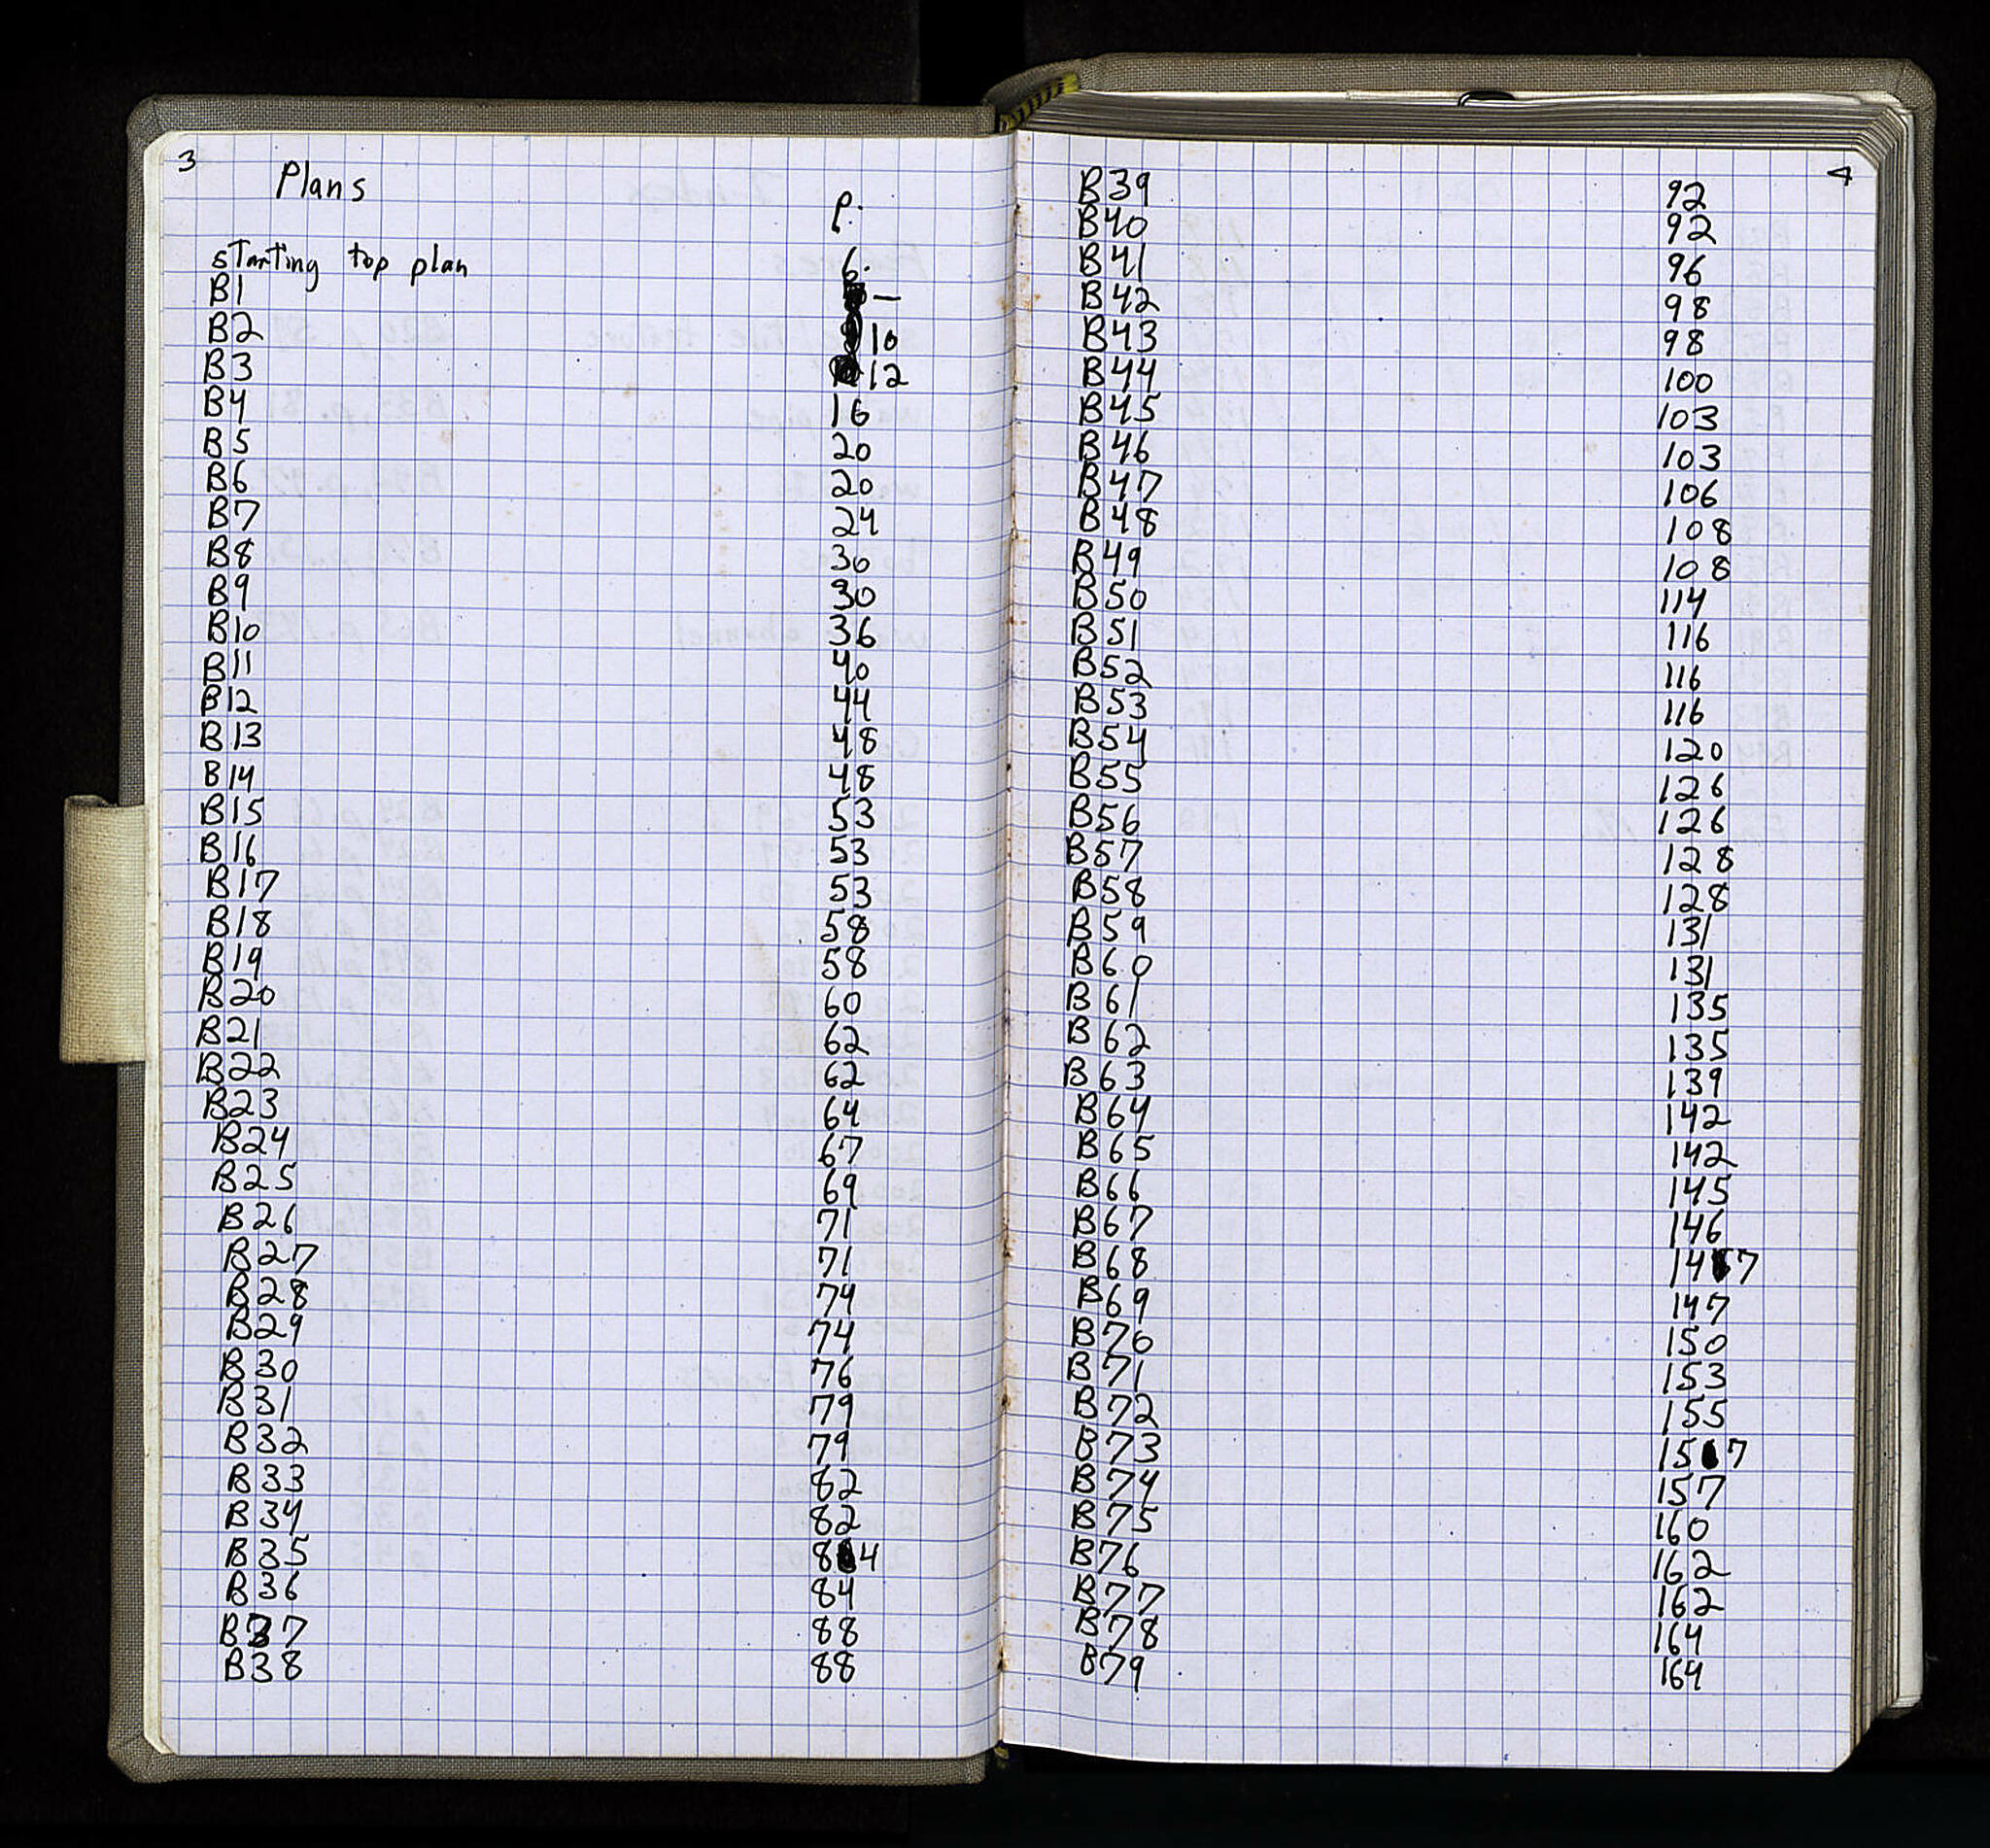 3
Plans
P.
starting top plan 6.
B1 —
B2 10
B3 12
B4 16
B5 20
B6 20
B7 24
B8 30
B9 30
B10 36
B11 40
B12 44
B13 48
B14 48
B15 53
B16 53
B17 53
B18 58
B19 58
B20 60
B21 62
B22 62
B23 64
B24 67
B25 69
B26 71
B27 71
B28 74
B29 74
B30 76
B31 79
B32 79
B33 82
B34 82
B35 84
B36 84
B37 88
B38 88
4
B39 92
B40 92
B41 96
B42 98
B43 98
B44 100
B45 103
B46 103
B47 106
B48 108
B49 108
B50 114
B51 116
B52 116
B53 116
B54 120
B55 126
B56 126
B57 128
B58 128
B59 131
B60 131
B61 135
B62 135
B63 139
B64 142
B65 142
B66 145
B67 146
B68 147
B69 147
B70 150
B71 153
B72 155
B73 157
B74 157
B75 160
B76 162
B77 162
B78 164
B79 164